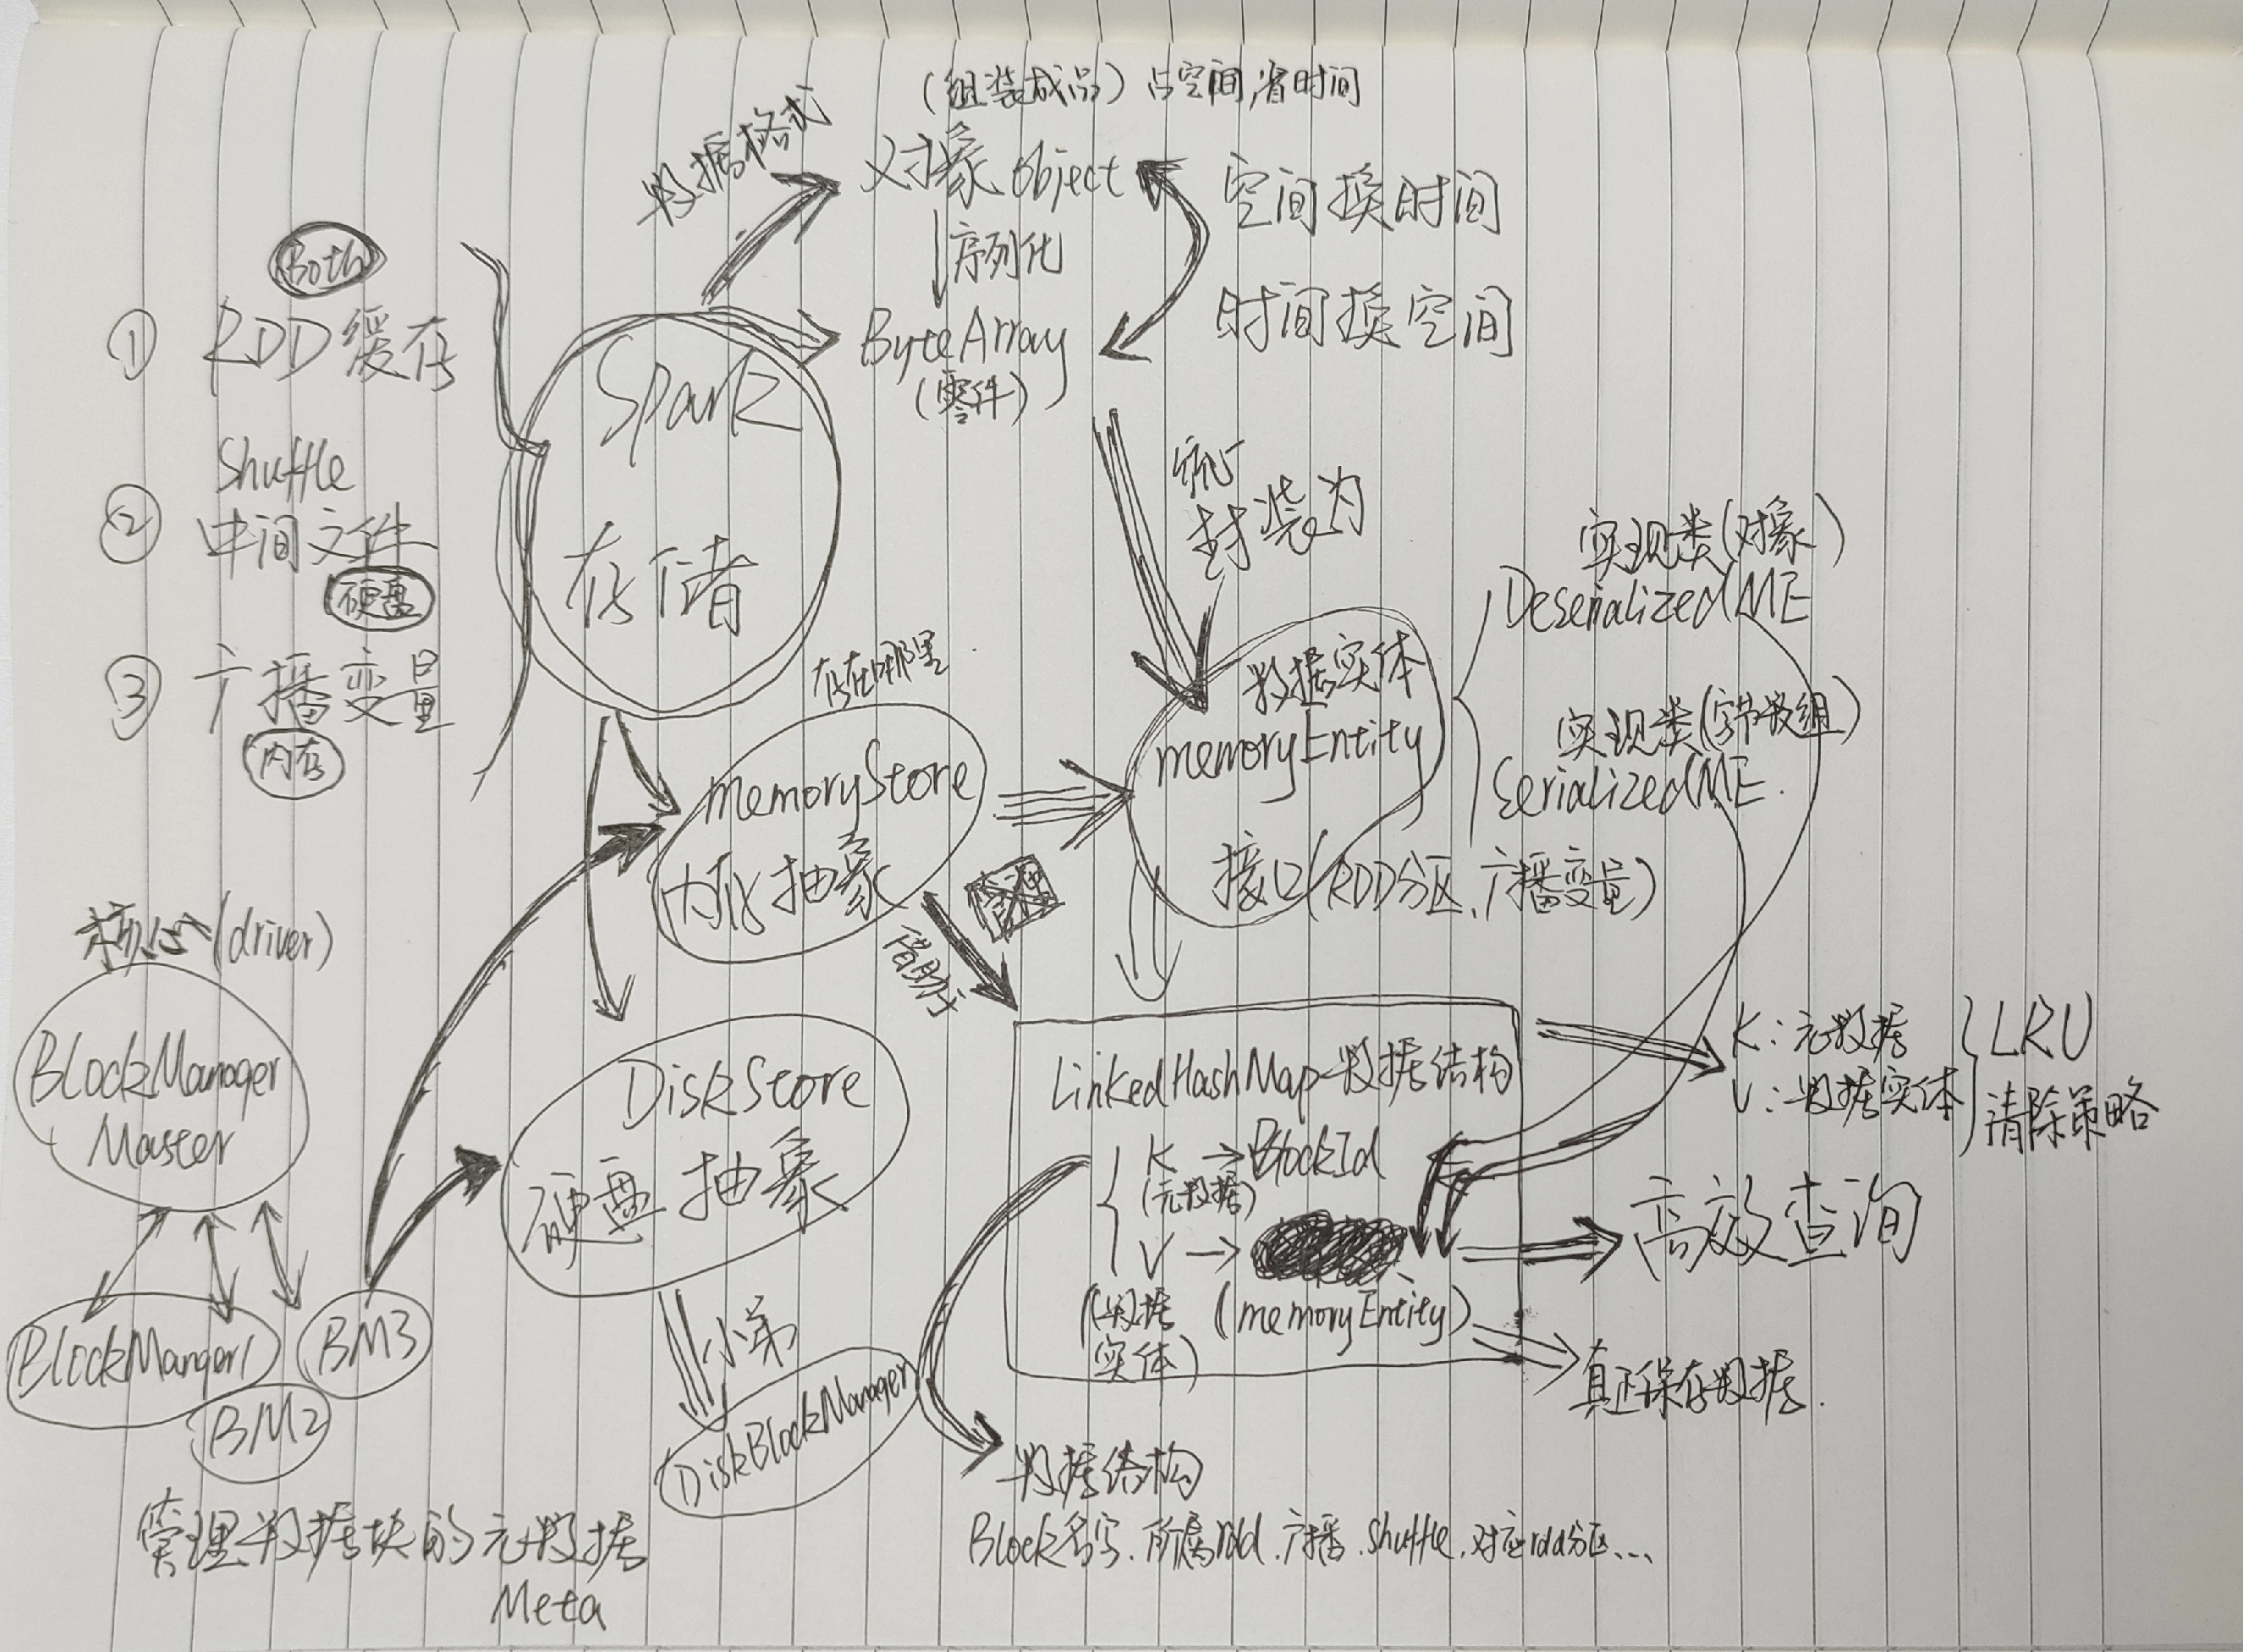 (组装成品)占空间,省时间
数据格式
对象 object
空间换时间
序列化
时间换空间
ByteArray
(零件)
Both
① RDD缓存
Shuffle
② 中间文件
硬盘
③ 广播变量
内存
Spark
存储
统一
封装为
实现类(对象)
DeserializedME
实现类(字节数组)
SerializedME.
存在哪里
数据实体
memoryEntity
接口(RDD分区、广播变量)
memoryStore
内存抽象
借助于
核心(driver)
BlockManager
Master
BlockManger1
BM2
BM3
管理数据块的元数据
Meta
DiskStore
硬盘 抽象
小弟
DiskBlockManager
LinkedHashMap-数据结构
K → BlockId
(元数据)
V →
(数据实体)
(memoryEntity)
K:元数据
V:数据实体
LRU
清除策略
高效查询
真正保存数据.
数据结构
Block名字.所属rdd.广播.shuffle.对应rdd分区...